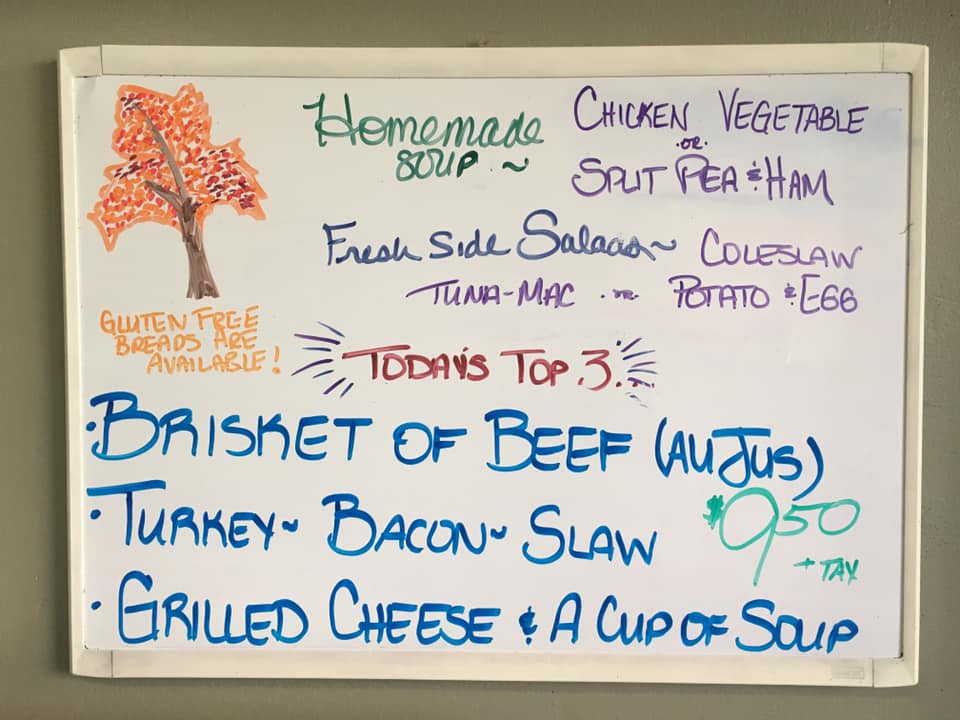 Homemade
SOUP ~
CHICKEN VEGETABLE
OR
SPLIT PEA & HAM
Fresh Side Salads ~ COLESLAW
TUNA-MAC OR POTATO & EGG
GLUTEN FREE
BREADS ARE
AVAILABLE!
TODAY'S TOP 3...
• BRISKET OF BEEF (AU JUS)
• TURKEY ~ BACON ~ SLAW
$9.50
+ TAX
• GRILLED CHEESE & A CUP OF SOUP